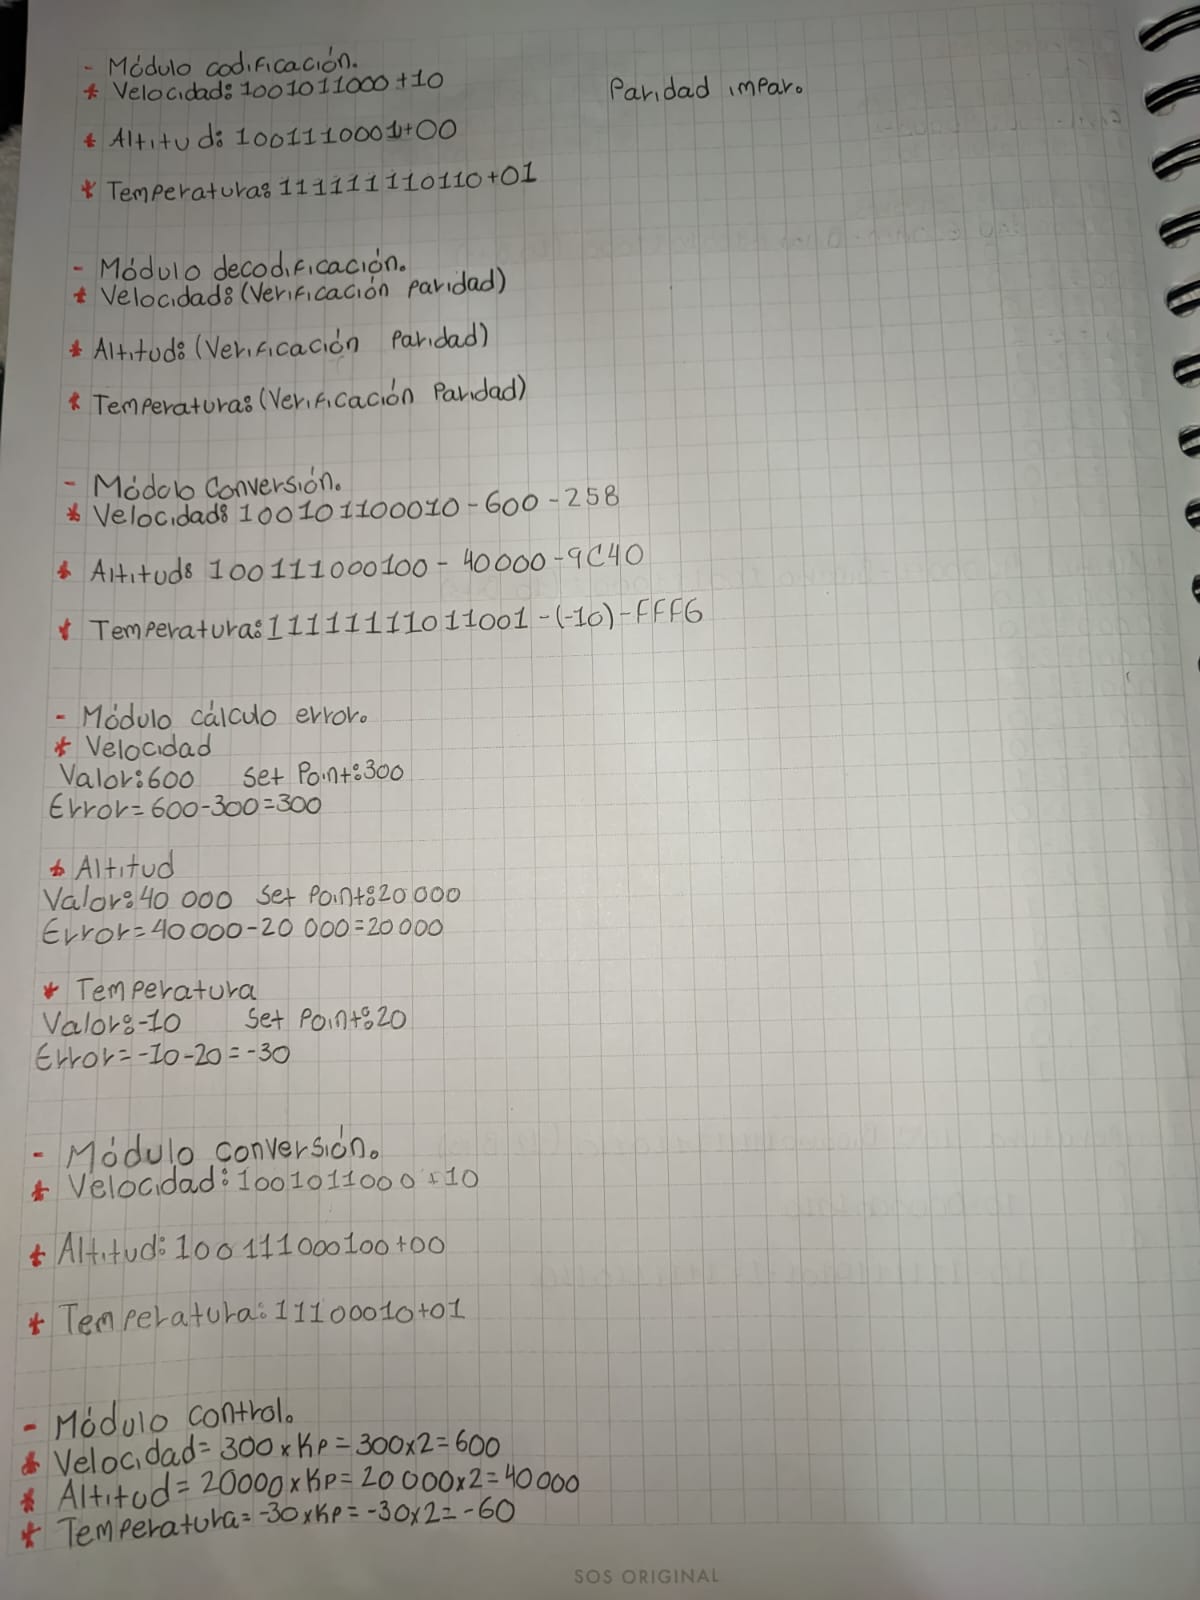 - Módulo codificación.
* Velocidad: 1001011000+10
Paridad impar.
* Altitud: 1001110001+00
* Temperatura: 111111110110+01
- Módulo decodificación.
* Velocidad: (Verificación paridad)
* Altitud: (Verificación Paridad)
* Temperatura: (Verificación Paridad)
- Módolo Conversión.
* Velocidad: 100101100010-600-258
* Altitud: 100111000100- 40000-9C40
* Temperatura: 11111111011001-(-10)-FFF6
- Módulo cálculo error.
* Velocidad
Valor: 600 Set Point: 300
Error= 600-300=300
* Altitud
Valor: 40 000 Set Point: 20 000
Error= 40000-20 000=20000
* Temperatura
Valor: -10 Set Point: 20
Error= -10-20=-30
- Módulo conversión.
* Velocidad: 1001011000+10
* Altitud: 100111000100+00
* Temperatura: 11100010+01
- Módulo control.
* Velocidad= 300xKP= 300x2=600
* Altitud= 20000xKP= 20 000x2=40000
* Temperatura= -30xKP= -30x2= -60
SOS ORIGINAL